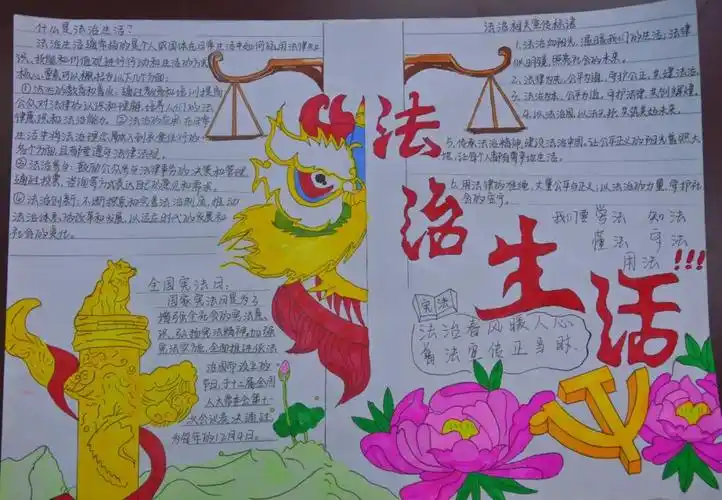 什么是法治生活?
法治生活通常指的是个人或团体在日常生活中如何运用法律知
识、技能和价值观进行行动和生活的方式
核心要素可以概括为以下几个方面:
①法治的教育和普及:通过教育和培训提高
公众对法律的认识和理解,培养人们的法
律意识和法治能力。②法治的应用:在日常
生活中将法治理念融入到衣食住行的
各个方面且都要遵守法律法规。
③法治参与:鼓励公众参与法律事务的决策和管理
通过投票、咨询等方式表达自己的意见和要求。
④法治创新:不断探索和完善法治制度,推动
法治体系的改革和发展,以适应时代的发展和
社会的变化。
全国宪法日:
国家宪法日是为了
增强全社会的宪法意
识,弘扬宪法精神,加强
宪法实施,全面推进依法
治国而设立的
节日,于十二届全国
人大常委会第十一
次会议表决通过
为每年的12月4日。
法治生活
法治相关宣传标语
1.法治如阳光,温暖我们的生活;法律
如明镜,照亮社会的未来。
2.法律为先,公平为道,守护公正,共建法治。
3.法治为本,公平为道,守护法律,共创辉煌。
4.以法治国,以法兴邦,共筑美好未来。
5.传承法治精神,建设法治中国,让公平正义的阳光普照大
地,让每个人都有尊严地生活。
6.用法律的准绳,丈量公平正义;以法治的力量,守护社
会的安宁。
我们要 学法 知法
懂法 守法
用法!!!
宪法
法治春风暖人心
普法宣传正当时.